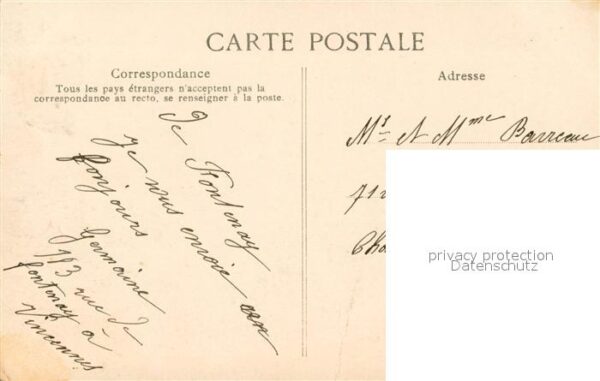 CARTE POSTALE
Correspondance
Tous les pays étrangers n'acceptent pas la
correspondance au recto, se renseigner à la poste.
De Fontenay
Je vous envoie
bonjours
Germaine
113 rue de
fontenay à
Vincennes
Adresse
Mr et Mme Barreau
71
privacy protection
Datenschutz